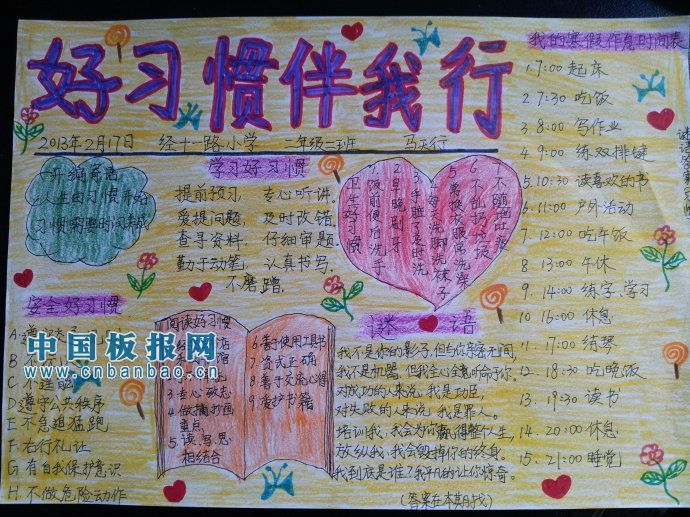 好习惯伴我行
2013年2月17日 经十一路小学 二年级二班 马天行
人生由习惯开始
学习好习惯
提前预习, 专心听讲。
爱提问题, 及时改错。
查寻资料, 仔细审题。
勤于动笔, 认真书写。
不磨蹭。
卫生好习惯
1.饭前便后洗手
2.早晚刷牙
3.手脏了及时洗
4.每天洗脚洗袜子
5.勤换衣服常洗澡
6.不乱扔垃圾
7.不随地吐痰
我的寒假作息时间表
1.7:00 起床
2.7:30 吃饭
3.8:00 写作业
4.9:00 练双排键
5.10:30 读喜欢的书
6.11:00 户外活动
7.12:00 吃午饭
8.13:00 午休
9.14:00 练字、学习
10.16:00 休息
11.17:00 练琴
12.18:30 吃晚饭
13.19:30 读书
14.20:00 休息
15.21:00 睡觉
安全好习惯
D遵守公共秩序
E不急追猛跑
F右行礼让
G有自我保护意识
H不做危险动作
阅读好习惯
3专心致志
4做摘抄画
重点
5读、写、思
相结合
6善于使用工具书
7姿式正确
8善于交流心得
9爱护书籍
谜语
我不是你的影子,但与你亲密无间,
我不是机器,但我全心全意听命于你。
对成功的人来说,我是功臣,
对失败的人来说,我是罪人。
培训我,我会为你赢得整个人生,
放纵我,我会毁掉你的终身。
我到底是谁?我平凡的让你惊奇。
(答案在本期找)
中国板报网
www.cnbanbao.cn